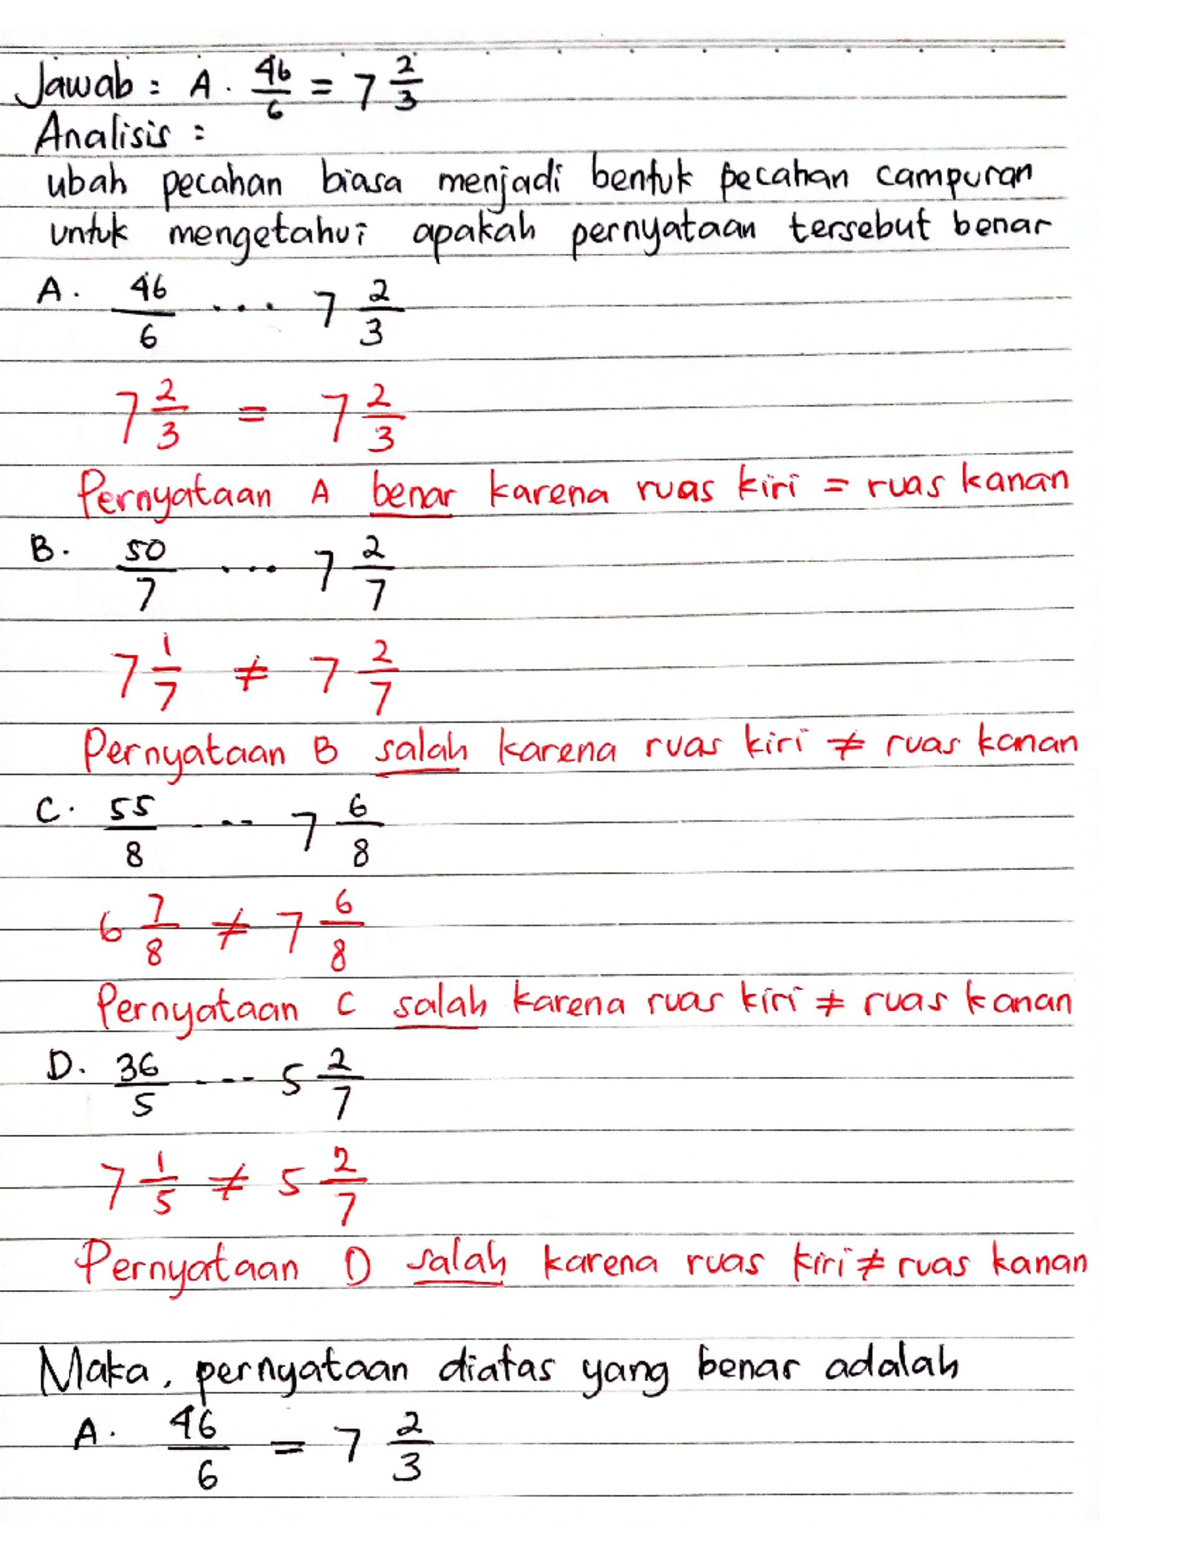 Jawab : A. 46/6 = 7 2/3
Analisis :
ubah pecahan biasa menjadi bentuk pecahan campuran
untuk mengetahui apakah pernyataan tersebut benar
A. 46/6 ... 7 2/3
7 2/3 = 7 2/3
Pernyataan A benar karena ruas kiri = ruas kanan
B. 50/7 ... 7 2/7
7 1/7 ≠ 7 2/7
Pernyataan B salah karena ruas kiri ≠ ruas kanan
C. 55/8 ... 7 6/8
6 7/8 ≠ 7 6/8
Pernyataan C salah karena ruas kiri ≠ ruas kanan
D. 36/5 ... 5 2/7
7 1/5 ≠ 5 2/7
Pernyataan D salah karena ruas kiri ≠ ruas kanan
Maka, pernyataan diatas yang benar adalah
A. 46/6 = 7 2/3